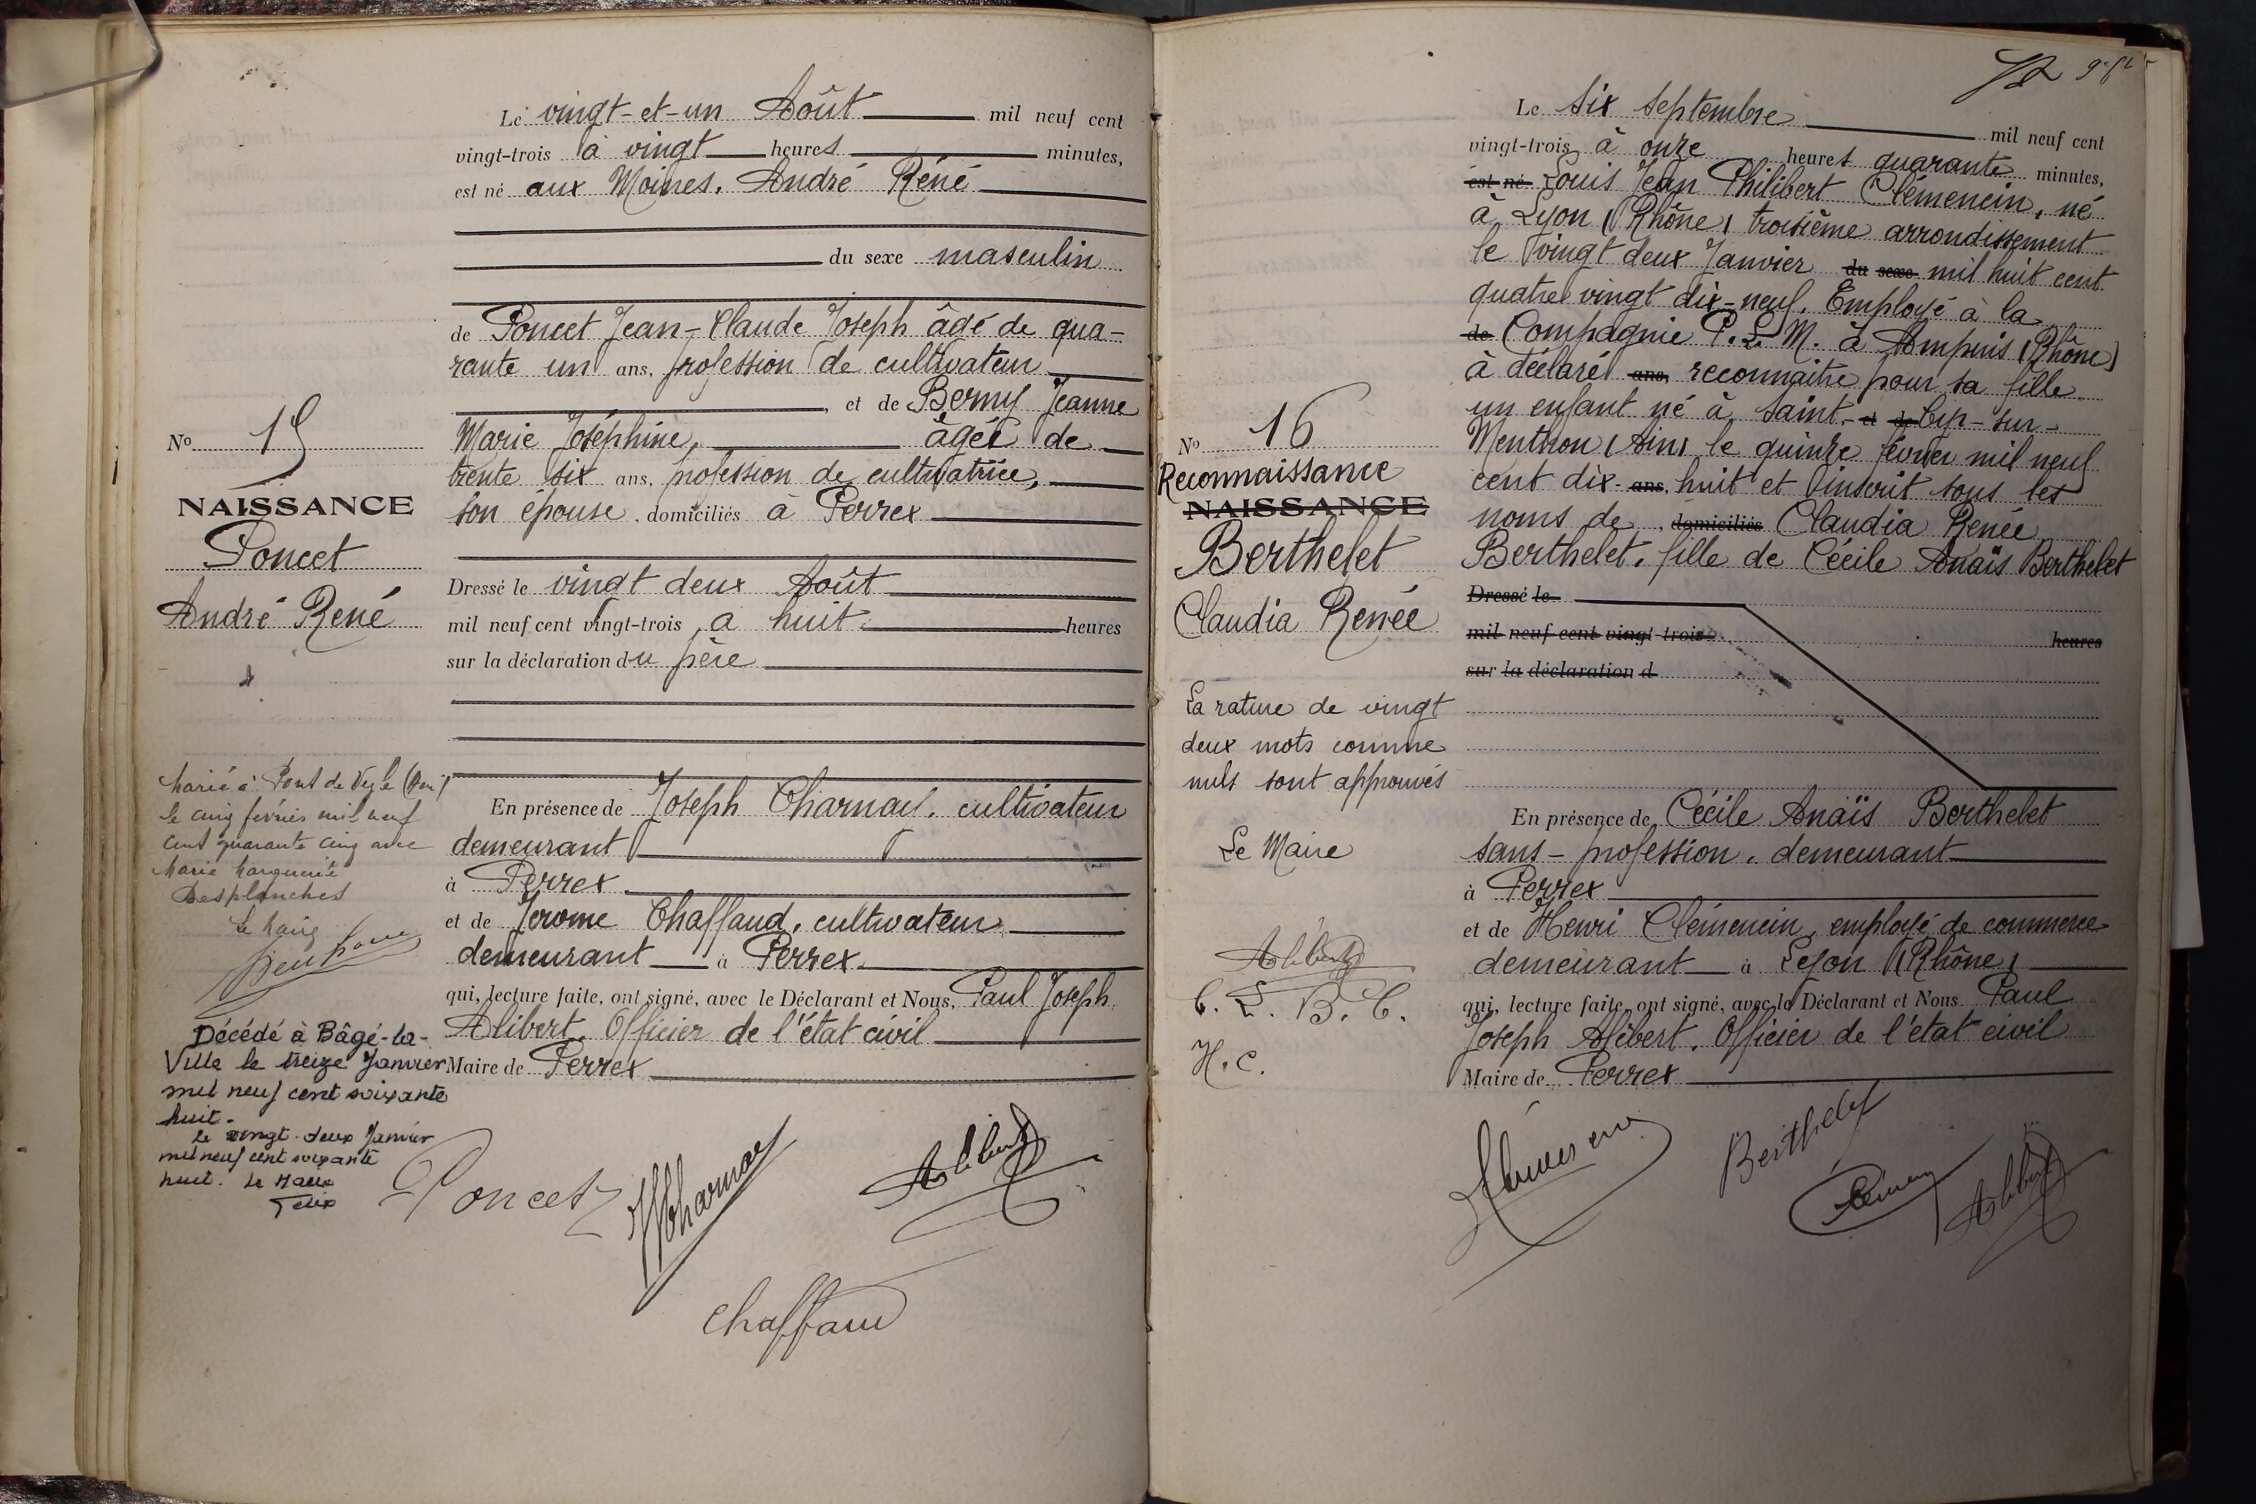 Nº 15
NAISSANCE
Poncet
André René
Marié à Pont de Veyle (Ain)
le cinq février mil neuf
cent quarante cinq avec
Marie Marguerite
Desplanches
Le Maire
Décédé à Bâgé-la-
Ville le treize Janvier
mil neuf cent soixante
huit.
Le vingt-deux Janvier
mil neuf cent soixante
huit. Le Maire
Le vingt-et-un Août mil neuf cent
vingt-trois à vingt heures minutes,
est né aux Moines. André Réné
du sexe masculin
de Poncet Jean-Claude Joseph âgé de qua-
rante un ans, profession de cultivateur
, et de Berny Jeanne
Marie Joséphine, âgée de
trente six ans, profession de cultivatrice,
son épouse, domiciliés à Perrex
Dressé le vingt deux Août
mil neuf cent vingt-trois, a huit heures
sur la déclaration du père
En présence de Joseph Charnay, cultivateur
demeurant
à Perrex
et de Jerome Chaffaud, cultivateur
demeurant à Perrex
qui, lecture faite, ont signé, avec le Déclarant et Nous, Paul Joseph
Alibert. Officier de l'état civil
Maire de Perrex
Poncet
Charnay
Alibert
Chaffaud
72
Nº 16
Reconnaissance
NAISSANCE
Berthelet
Claudia Renée
La rature de vingt
deux mots comme
nuls sont approuvés
Le Maire
Alibert
C. L. B. C.
H. C.
Le six septembre mil neuf cent
vingt-trois à onze heures quarante minutes,
est né Louis Jean Philibert Clémencin, né
à Lyon (Rhône) troisième arrondissement
le vingt deux Janvier du sexe mil huit cent
quatre vingt dix-neuf. Employé à la
de Compagnie P. L. M. à Ampuis (Rhône)
à déclaré ans, reconnaitre pour sa fille
un enfant né à Saint- et de Cyr-sur-
Menthon (Ain) le quinze février mil neuf
cent dix- ans, huit et inscrit sous les
noms de , domiciliés Claudia Renée
Berthelet, fille de Cécile Anaïs Berthelet
Dressé le
mil neuf cent vingt-trois heures
sur la déclaration d
En présence de Cécile Anaïs Berthelet
sans-profession, demeurant
à Perrex
et de Henri Clémencin, employé de commerce
demeurant à Lyon (Rhône)
qui, lecture faite, ont signé, avec le Déclarant et Nous Paul
Joseph Alibert. Officier de l'état civil
Maire de Perrex
Berthelet
Alibert